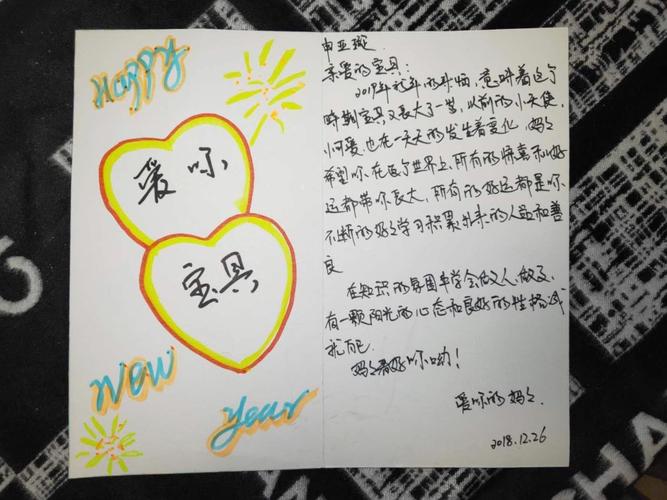 Happy
爱你
宝贝
New
Year
申亚
亲爱的宝贝:
2019年新年的开始,意味着这个
时期宝贝又长大了一岁,以前的小天使,
小可爱也在一天天的发生着变化,妈妈
希望你在这个世界上,所有的惊喜和好
运都带你长大,所有的好运都是你
不断的好好学习积累升来的人品和善
良
在知识的氛围中学会做人、做事,
有一颗阳光的心态和良好的性格
就OK
妈妈看好你呦!
爱你的妈妈
2018.12.26
HA